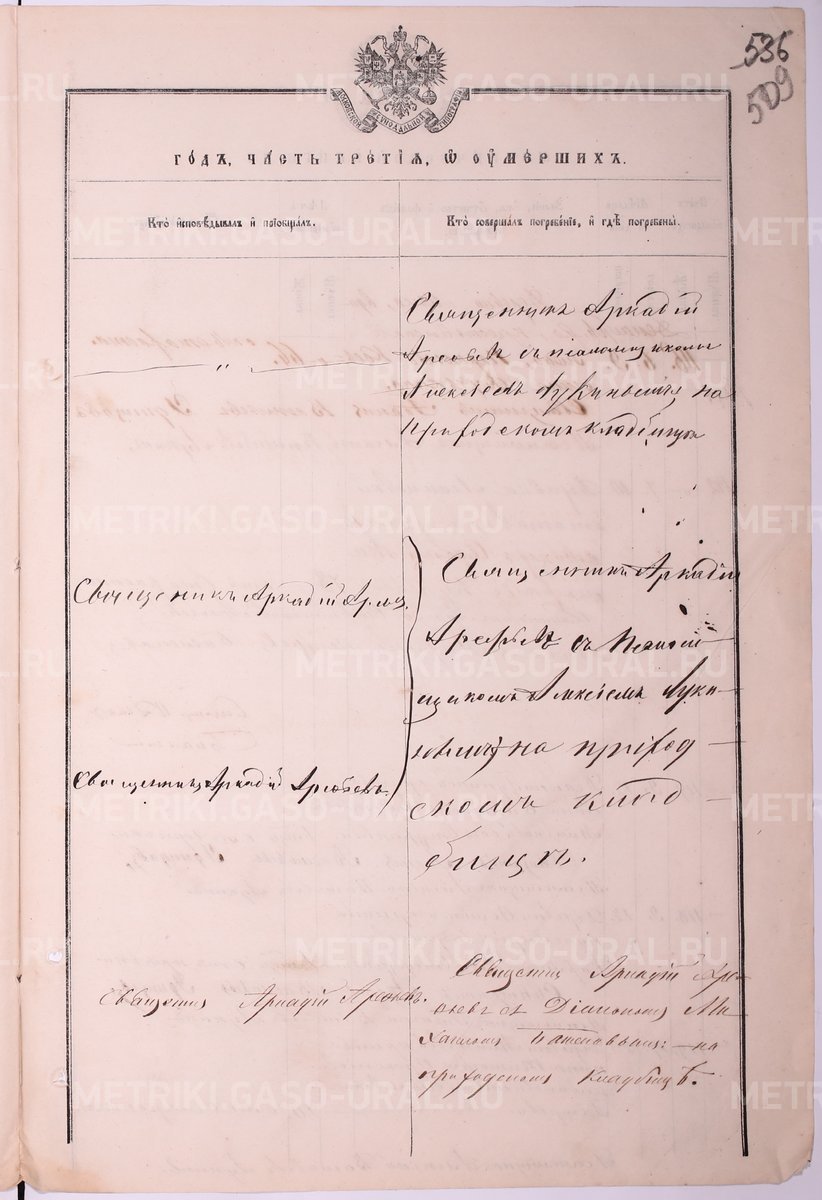 536
509
СѴНОДАЛЬНОЙ
ГО́ДЪ, ЧА́СТЬ ТРЕ́ТІѦ, Ѡ҆ ОУ҆МЕ́РШИХЪ.
Кто̀ и҆сповѣ́дывалъ и҆ прїобща́лъ.
Кто̀ соверша́лъ погребе́нїе, и҆ гдѣ̀ погребены̀.
"
Священникъ Аркадій
Арефьевъ съ псаломщикомъ
Алексѣемъ Лукинымъ на
Приходскомъ кладбищѣ
Священникъ Аркадій
Священникъ Аркадій
Арефьевъ съ Псалом
щикомъ Алексѣемъ Луки
нымъ на приход
скомъ клад
бищѣ.
Священникъ Аркадій Арефьевъ
Священникъ Аркадій Арефьевъ.
Священникъ Аркадій Аре
фьевъ съ Діакономъ Ми
хаиломъ на
приходскомъ кладбищѣ.
METRIKI.GASO-URAL.RU